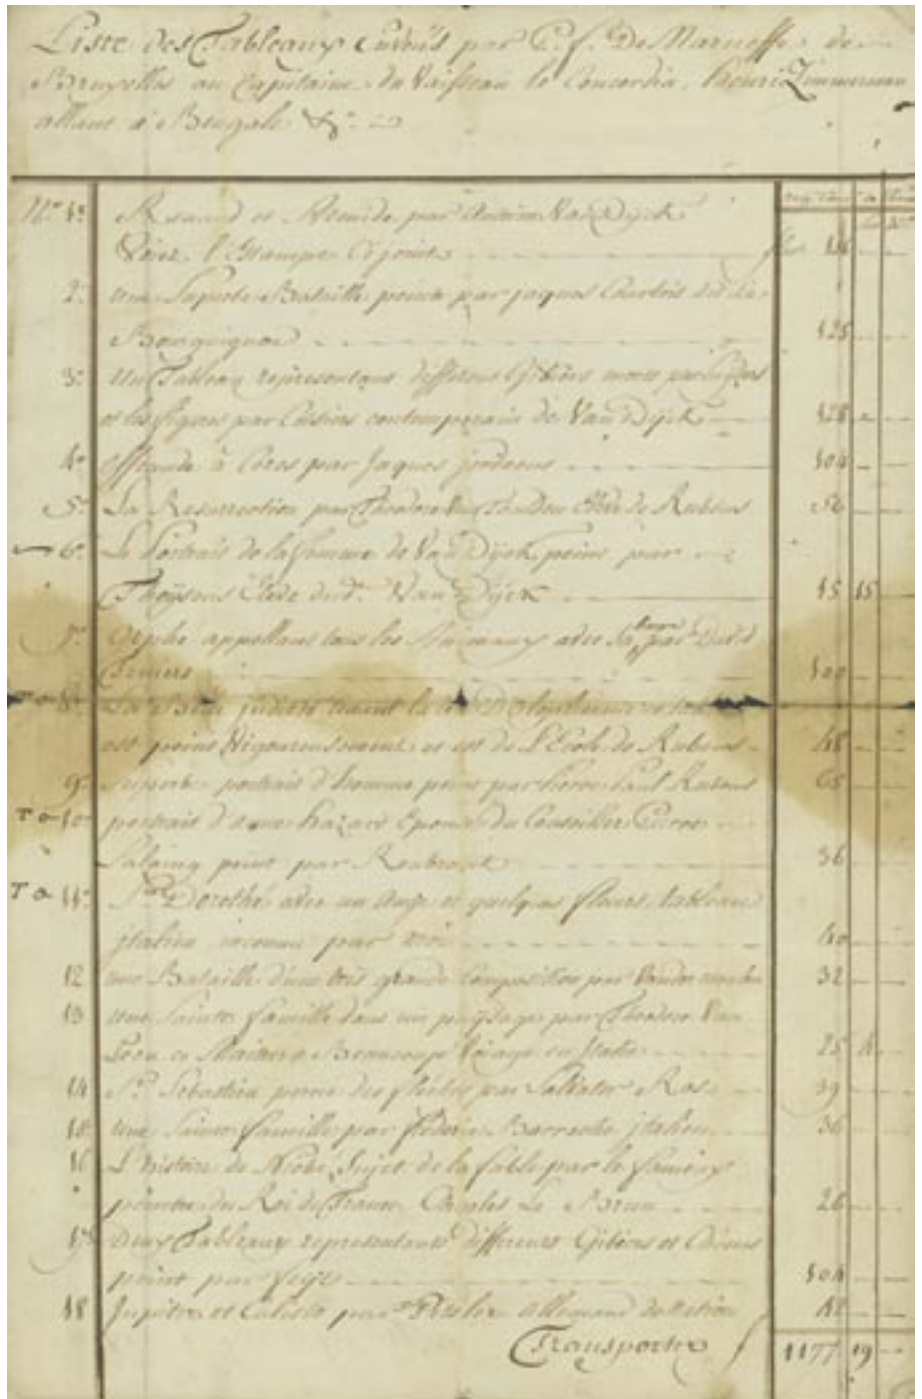 Liste des Tableaux Envoiés par P. f. De Marneffe de
Bruxelles au Capitaine du Vaisseau le Concordia. Henri Zimmerman
allant à Bengale &c.
No. 1o Renaud et Armide par Antoine Van Dyck
Voiez l'Estampe Ci jointe
2o une Superbe Bataille peinte par jaques Courtois dit Le
Bourguignon 125
3o Un Tableau représentant differens Gibiers morts par
et les figures par Cossiers contemporain de Van Dyck 128
4o offrande à Ceres par Jaques jordaens 104
5o La Resurrection par Theodore Van Thulden Elève de Rubens 56
6o Le Portrait de la femme de Van Dyck peint par
Thÿsens Eleve dudt. Van Dyck 45 15
7o Orphé appellant tous les Animaux avec Sa par David
Teniers 100
To 8o La Belle judith tenant la tete D'Holopherne
est peint Vigoureusement et est de l'Ecole de Rubens 48
9o Superbe portrait d'homme peint par Pierre Paul Rubens 65
To 10o portrait d'anne hazard Epouse du Conseiller
peint par 36
To 11o Ste Dorothé avec un Ange et quelques fleurs, tableau
italien inconnu pour moi 40
12 une Bataille d'une très grande Composition par Vander meulen 32
13 une Sainte famille dans un paÿsage par Theodore Van
Loon ce Maitre a Beaucoup Voiagé en Italie 25 4
14 St. Sebastien percé des flèches par Salvator Ros 39
15 une Sainte famille par fréderic Barroche italien 36
16 L'histoire de Niobé Sujet de la fable par le fameux
peintre du Roi de France Charles Le Brun 26
17 Deux Tableaux representants differents Gibiers et Chiens
peint par feÿt 104
18 Jupiter et Calisto par allemand de nation 42
Transporter f 1177 19